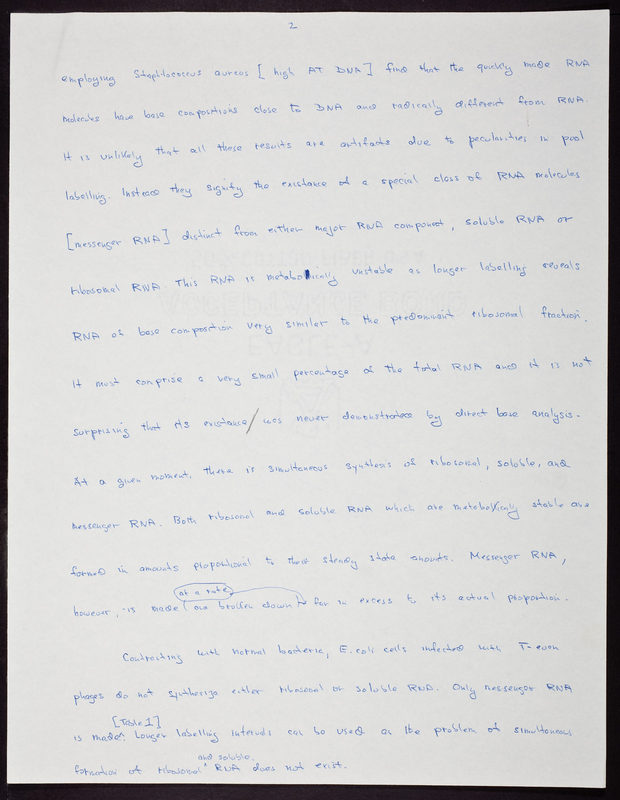 2
employing Staphlococcus aureos [high AT DNA] find that the quickly made RNA
molecules have base compositions close to DNA and radically different from RNA.
It is unlikely that all these results are artifacts due to pecularities in pool
labelling. Instead they signify the existance of a special class of RNA molecules
[messenger RNA] distinct from either major RNA component, soluble RNA or
ribosomal RNA. This RNA is metabolically unstable as longer labelling reveals
RNA of base composition very similar to the predominant ribosomal fraction.
It must comprise a very small percentage of the total RNA and it is not
surprising that its existance was never demonstrated by direct base analysis.
At a given moment, there is simultaneous synthesis of ribosomal, soluble, and
messenger RNA. Both ribosomal and soluble RNA which are metabolically stable are
formed in amounts proportional to their steady state amounts. Messenger RNA,
at a rate
however, is made and broken down far in excess to its actual proportion.
Contrasting with normal bacteria, E. coli cells infected with T-even
phages do not synthesize either ribosomal or soluble RNA. Only messenger RNA
[Table 1]
is made. Longer labelling intervals can be used as the problem of simultaneous
and soluble
formation of ribosomal RNA does not exist.